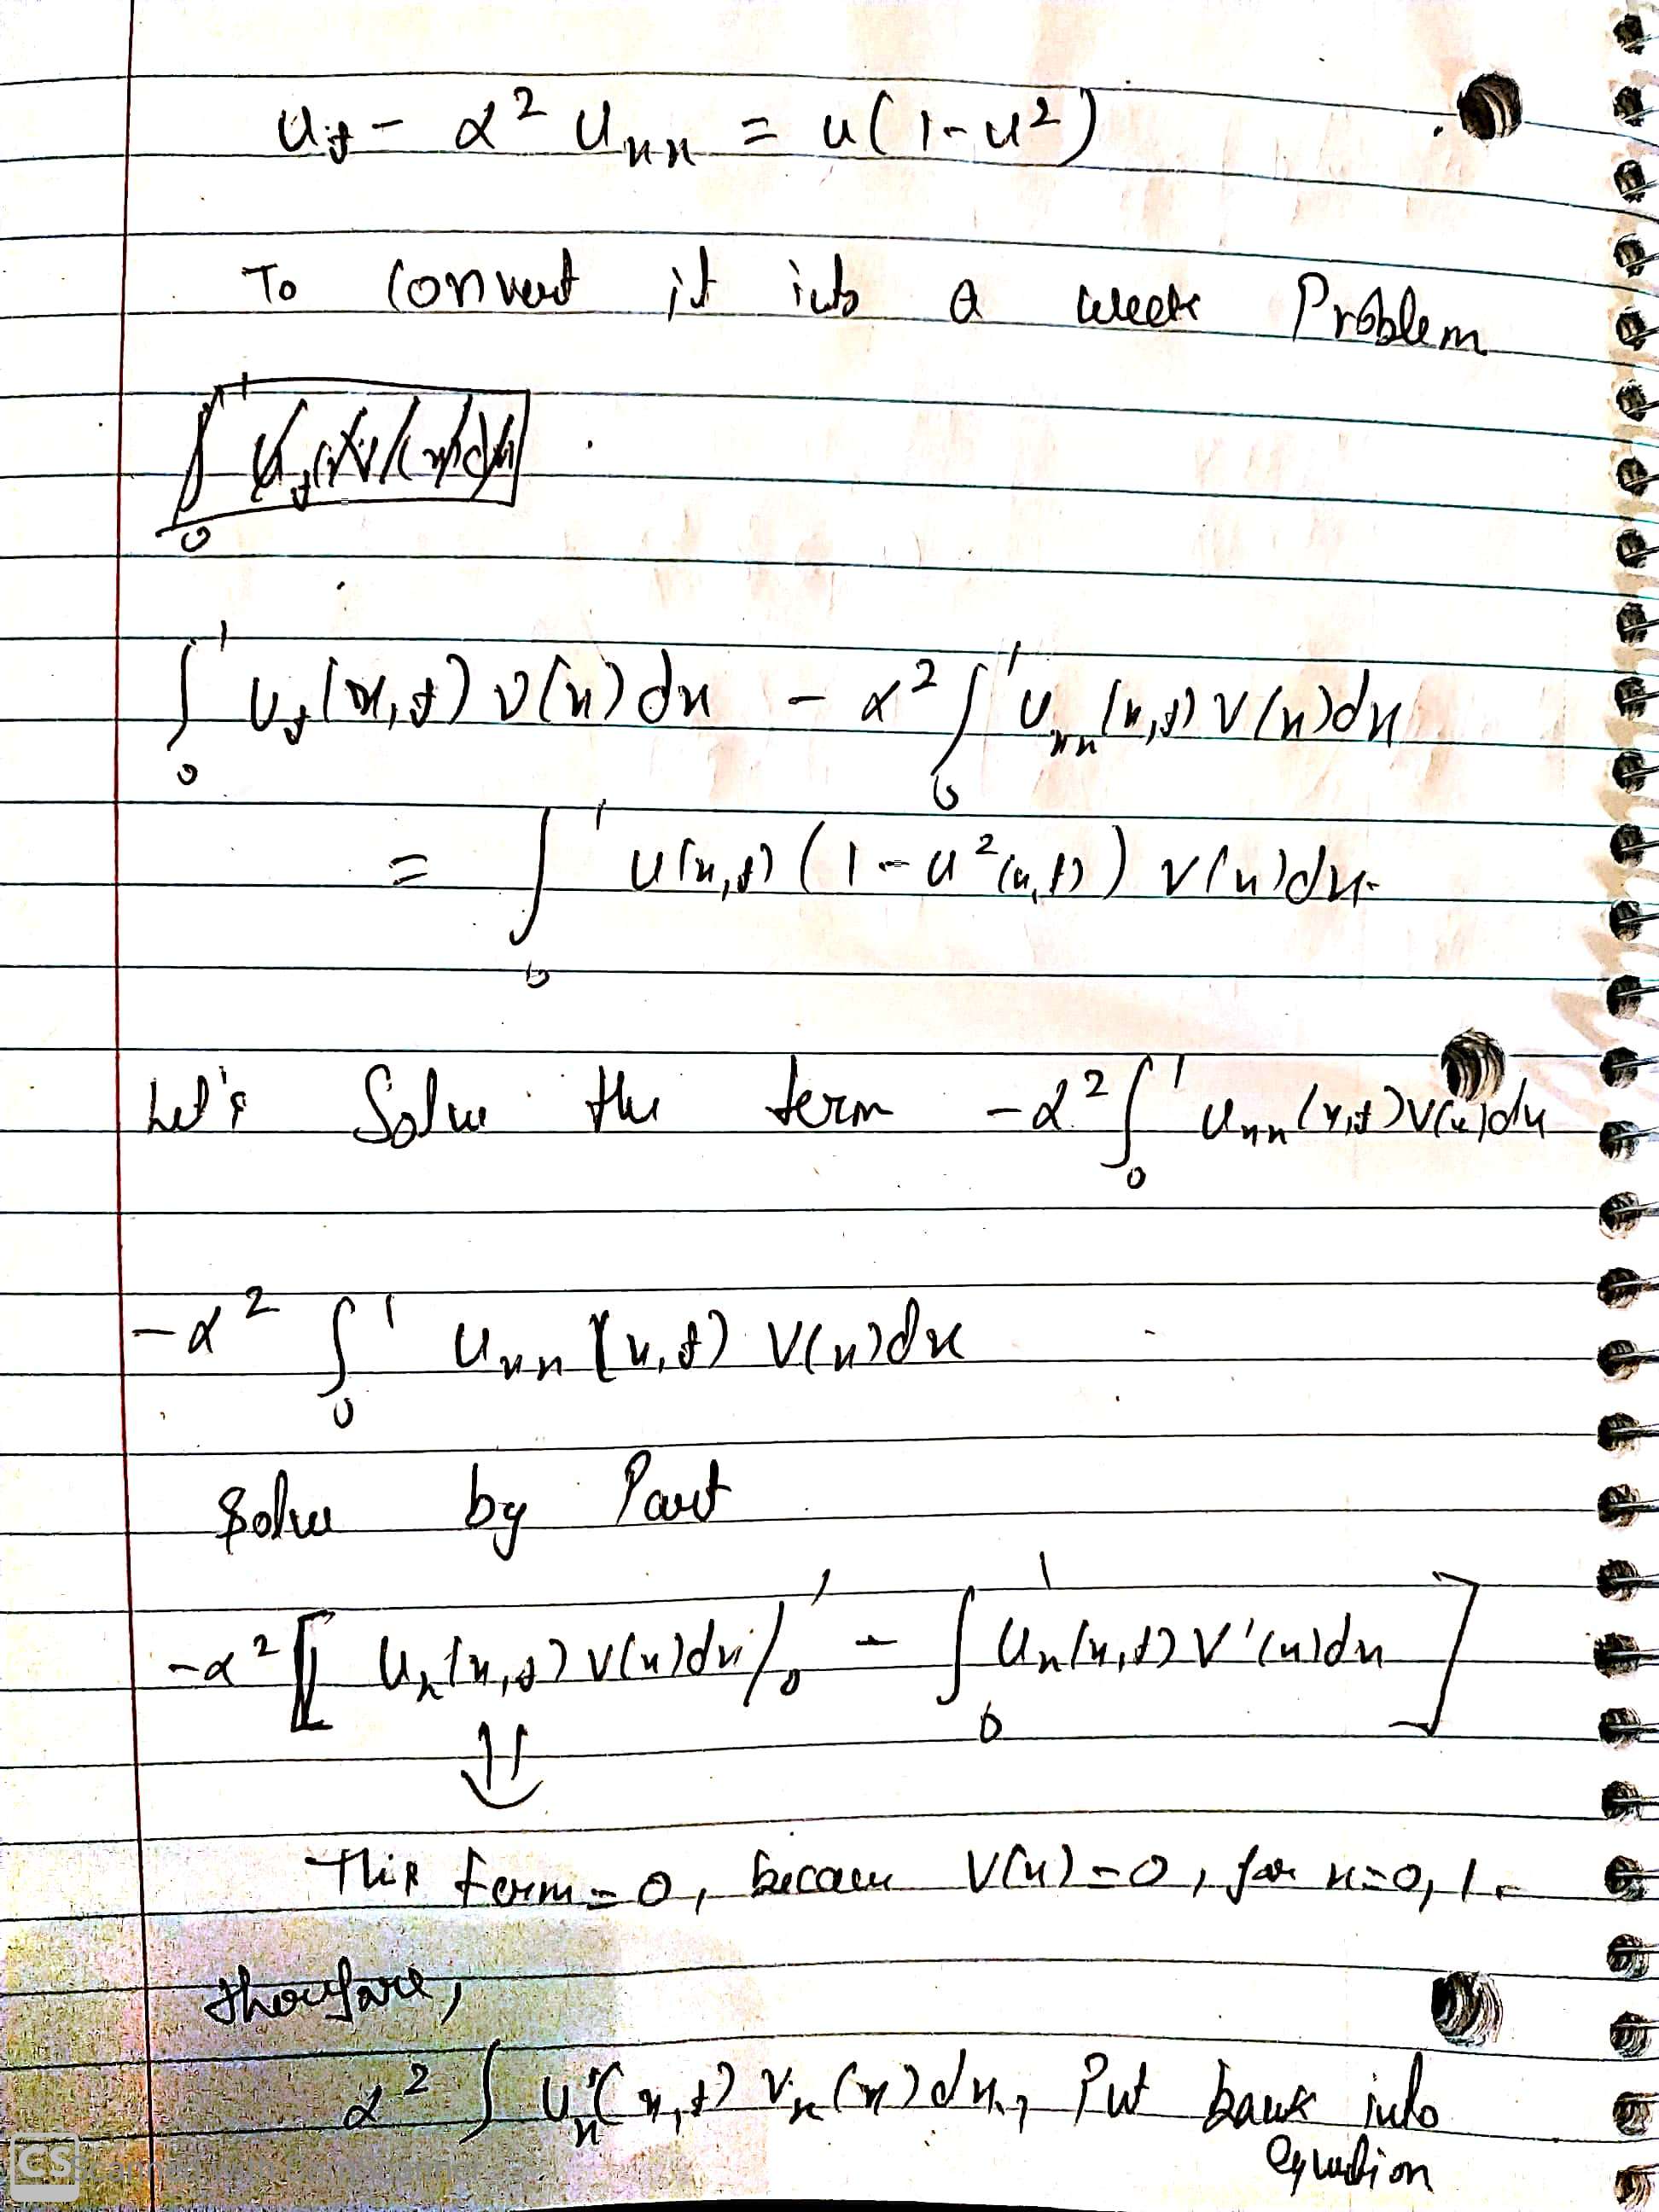 u_t - α² u_xx = u(1-u²)
To convert it into a week Problem
∫₀¹ u_t(x,t) v(x) dx - α² ∫₀¹ u_xx(x,t) v(x) dx
= ∫₀¹ u(x,t) (1-u²(x,t)) v(x) dx
Let's Solve the term -α² ∫₀¹ u_xx(x,t) v(x) dx
-α² ∫₀¹ u_xx(x,t) v(x) dx
Solve by Part
-α² [ u_x(x,t) v(x) dx |₀¹ - ∫₀¹ u_x(x,t) v'(x) dx ]
⇓
This term = 0, because v(x) = 0, for x=0, 1.
therefore,
α² ∫ u_x(x,t) v_x(x) dx, Put back into
equation
CS